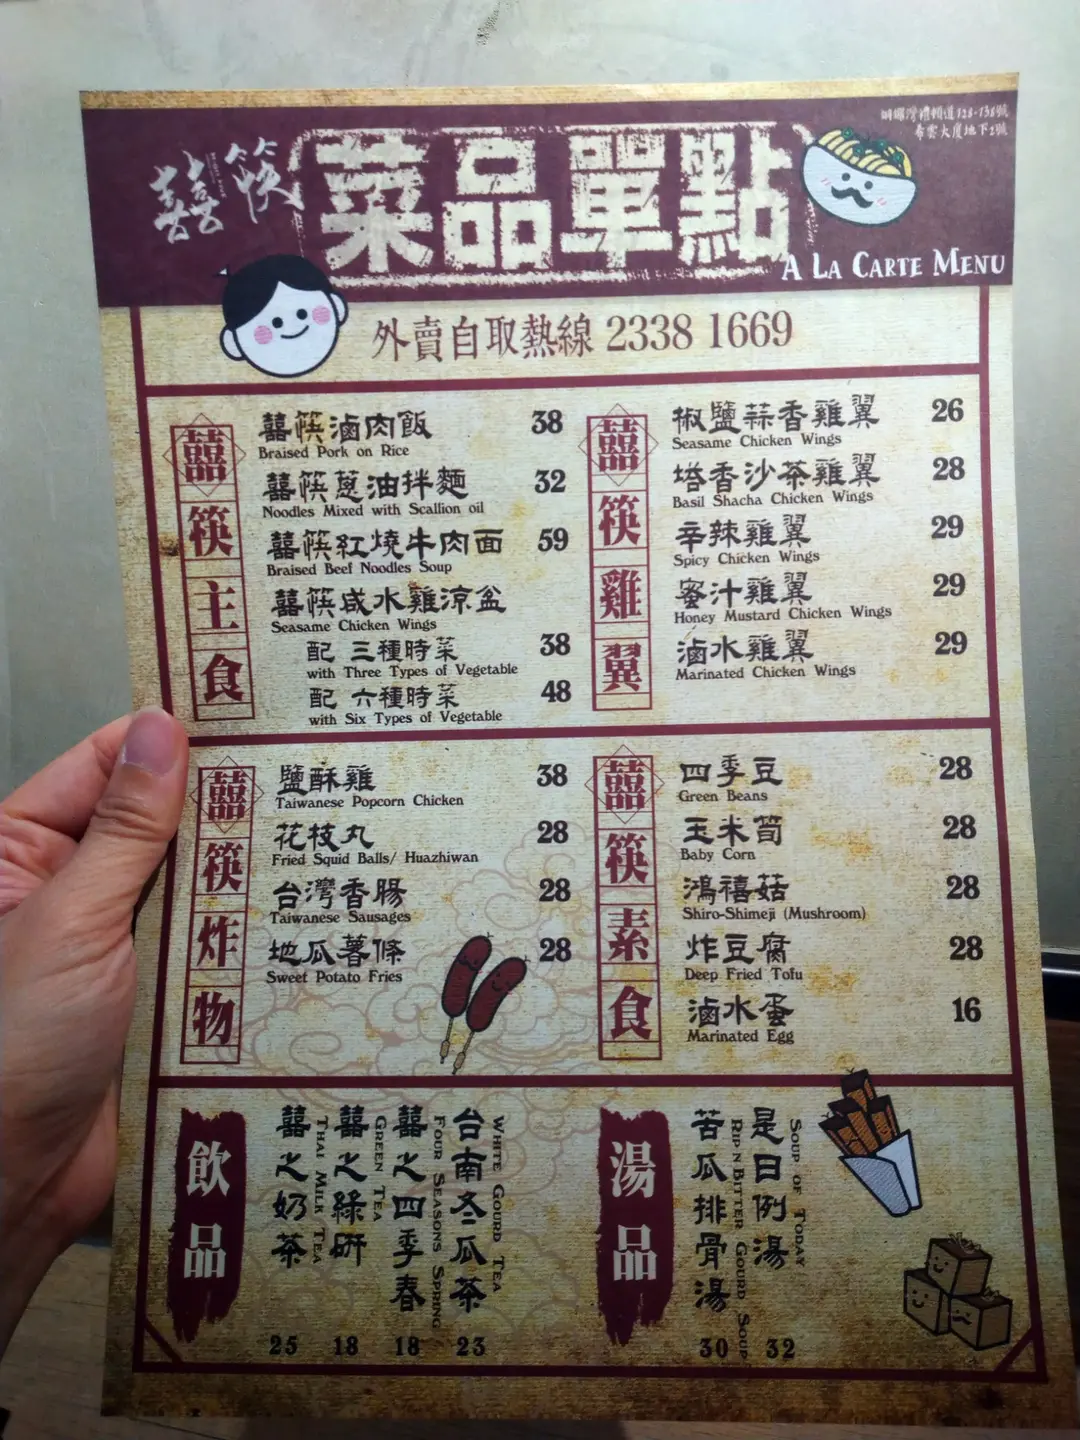 銅鑼灣禮頓道128-138號
希雲大廈地下2號
囍筷
菜品單點
A LA CARTE MENU
外賣自取熱線 2338 1669
囍筷主食
囍筷滷肉飯 38
Braised Pork on Rice
囍筷蔥油拌麵 32
Noodles Mixed with Scallion oil
囍筷紅燒牛肉面 59
Braised Beef Noodles Soup
囍筷咸水雞涼盆
Seasame Chicken Wings
配 三種時菜 38
with Three Types of Vegetable
配 六種時菜 48
with Six Types of Vegetable
囍筷雞翼
椒鹽蒜香雞翼 26
Seasame Chicken Wings
塔香沙茶雞翼 28
Basil Shacha Chicken Wings
辛辣雞翼 29
Spicy Chicken Wings
蜜汁雞翼 29
Honey Mustard Chicken Wings
滷水雞翼 29
Marinated Chicken Wings
囍筷炸物
鹽酥雞 38
Taiwanese Popcorn Chicken
花枝丸 28
Fried Squid Balls/ Huazhiwan
台灣香腸 28
Taiwanese Sausages
地瓜薯條 28
Sweet Potato Fries
囍筷素食
四季豆 28
Green Beans
玉米筍 28
Baby Corn
鴻禧菇 28
Shiro-Shimeji (Mushroom)
炸豆腐 28
Deep Fried Tofu
滷水蛋 16
Marinated Egg
飲品
囍之奶茶 25
THAI MILK TEA
囍之綠研 18
GREEN TEA
囍之四季春 18
FOUR SEASONS SPRING
台南冬瓜茶 23
WHITE GOURD TEA
湯品
苦瓜排骨湯 30
RIP N BITTER GOURD SOUP
是日例湯 32
SOUP OF TODAY